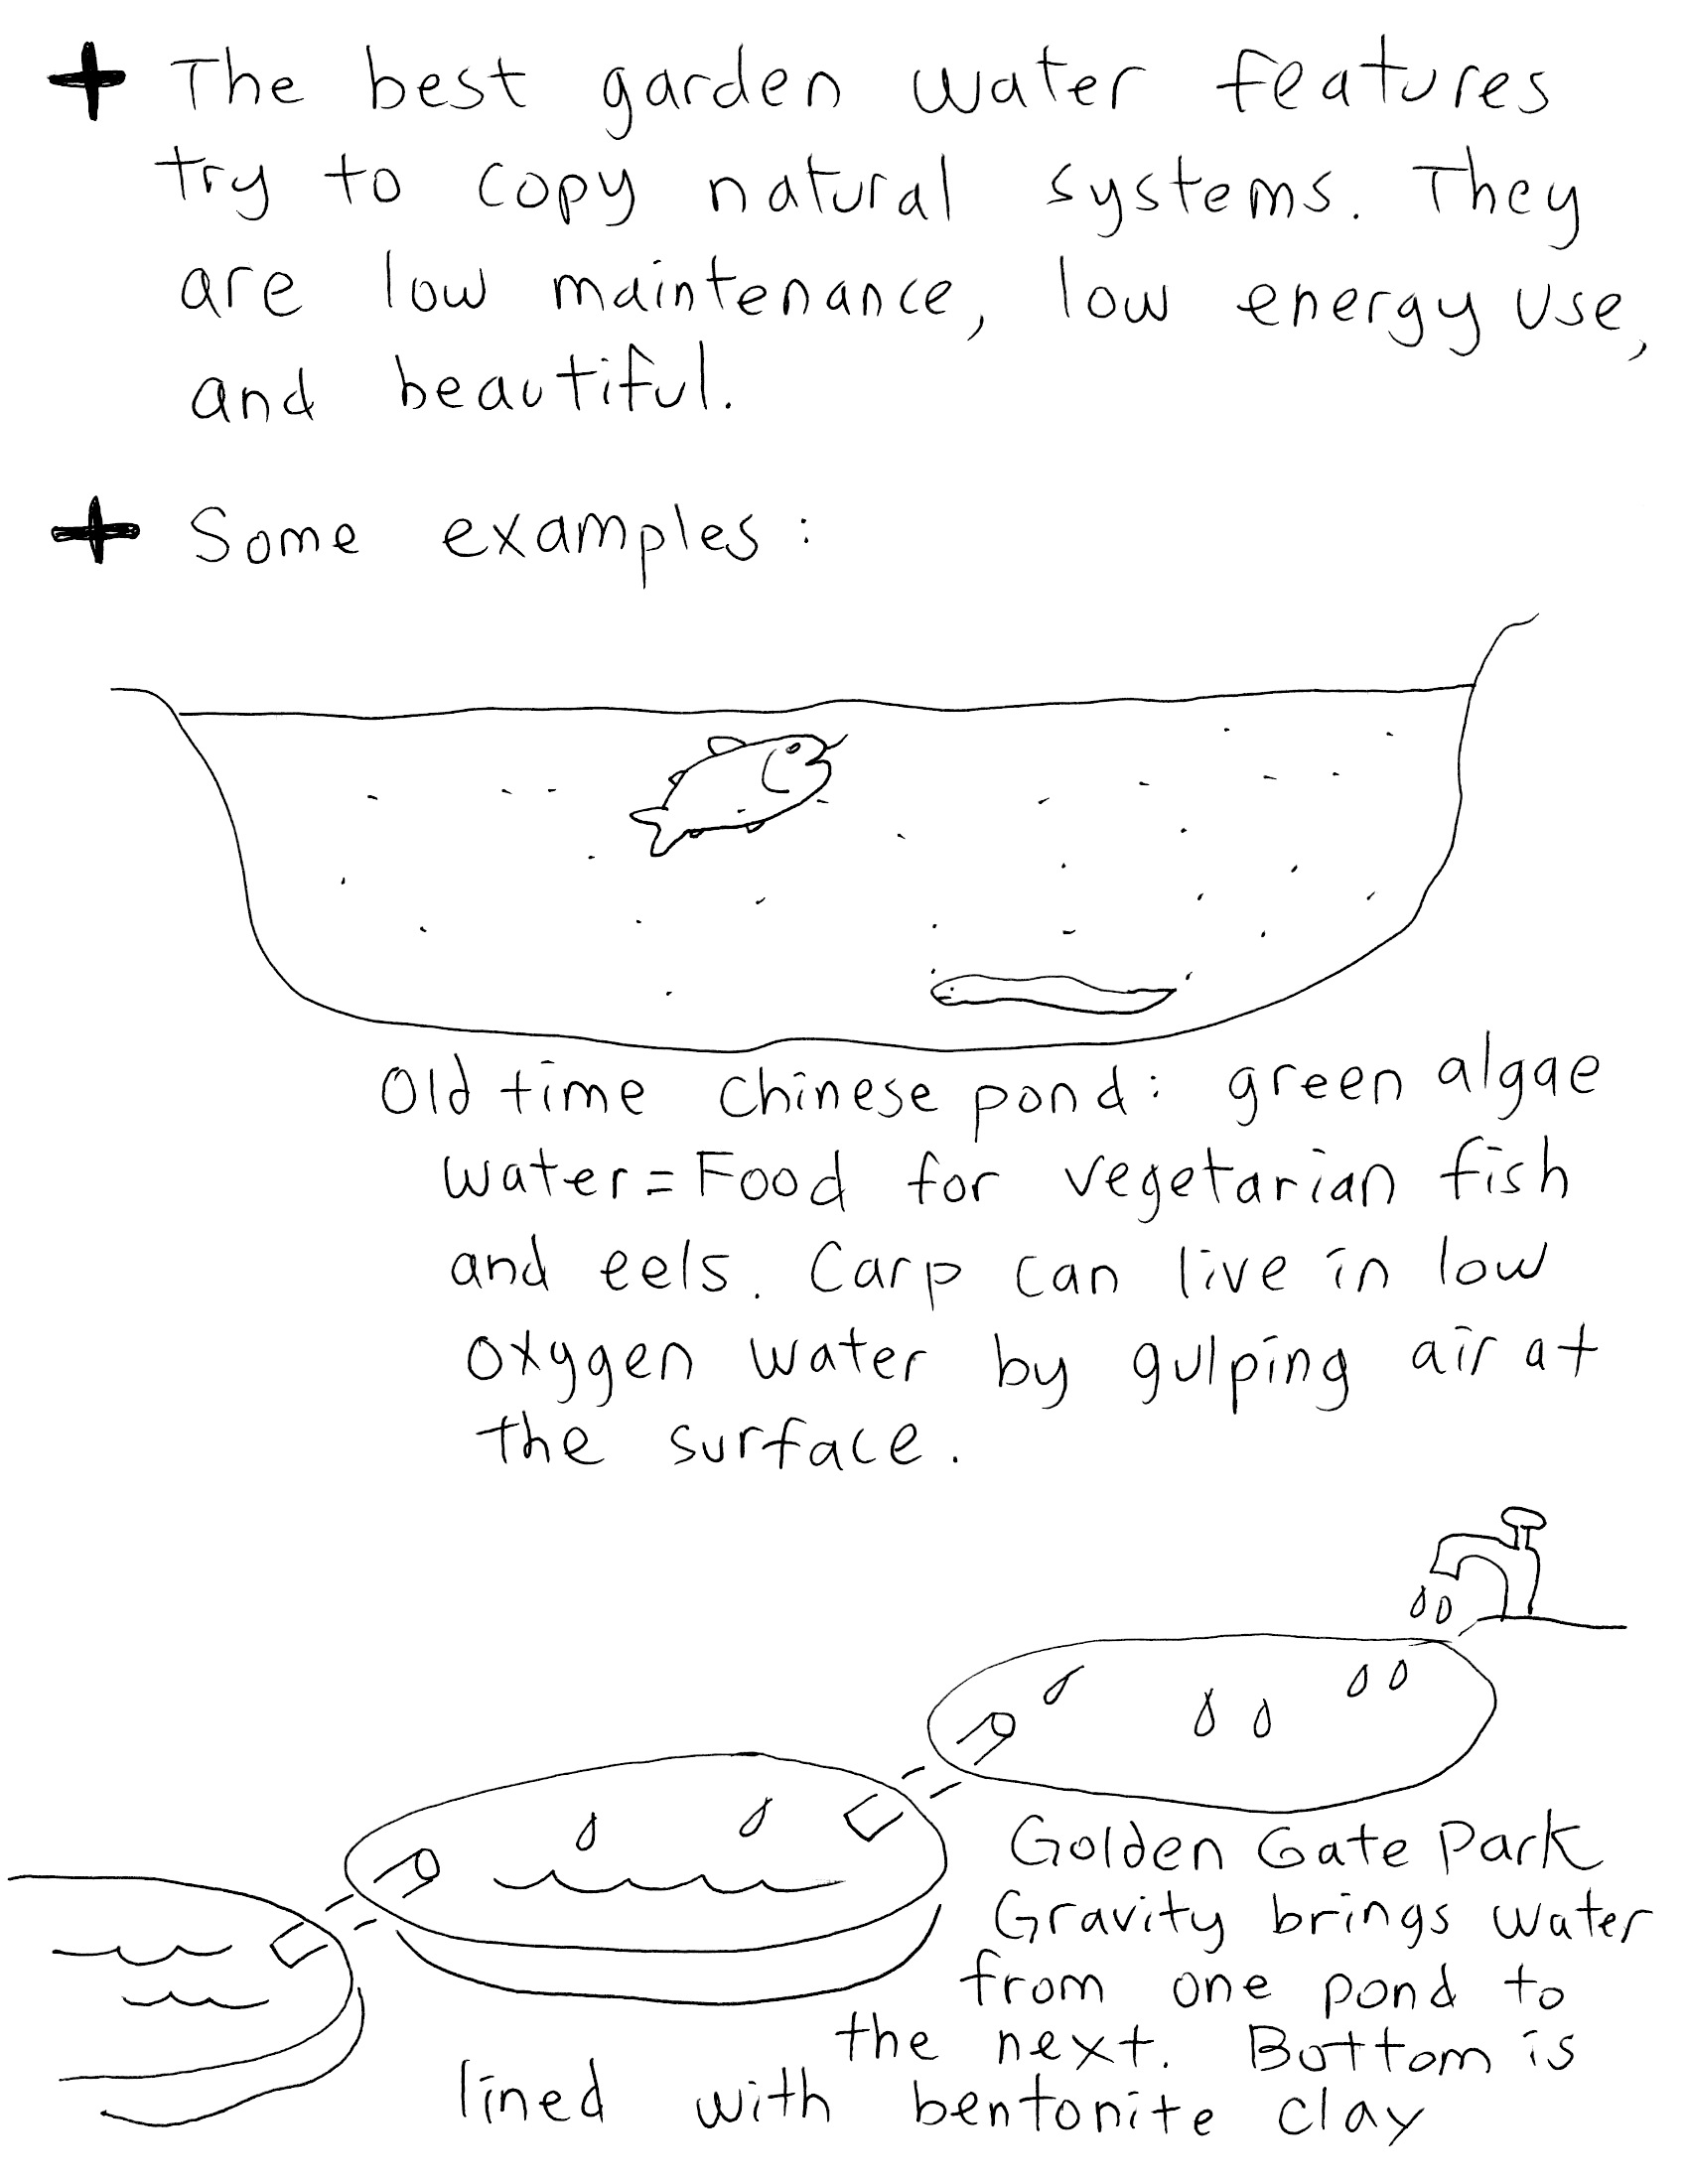 + The best garden water features
try to copy natural systems. They
are low maintenance, low energy use,
and beautiful.
+ Some examples:
Old time Chinese pond: green algae
water=Food for vegetarian fish
and eels. Carp can live in low
oxygen water by gulping air at
the surface.
Golden Gate Park
Gravity brings water
from one pond to
the next. Bottom is
lined with bentonite clay